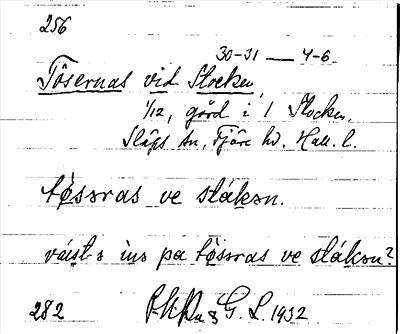 256
30-31 — 4-6.
Tösernas vid Stocken,
1/12, gård i 1 Stocken,
Släps sn, Fjäre hd, Hall. l.
tøsəras ve ståkən.
västə ins pa tøsəras ve ståkən?
282 G. L. 1932